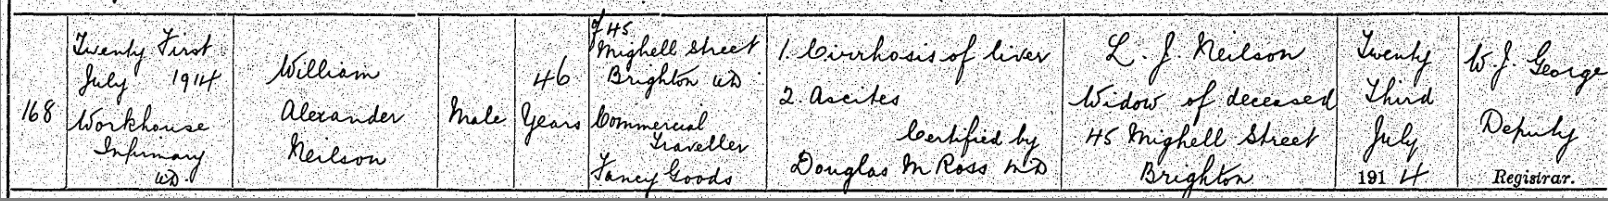 168
Twenty First
July 1914
Workhouse
Infirmary
UD.
William
Alexander
Neilson
Male
46
Years
of 45
Mighell Street
Brighton UD
Commercial
Traveller
Fancy Goods
1. Cirrhosis of liver
2. Ascites
Certified by
Douglas M Ross MD
L. J. Neilson
Widow of deceased
45 Mighell Street
Brighton
Twenty
Third
July
1914
W. J. George
Deputy
Registrar.